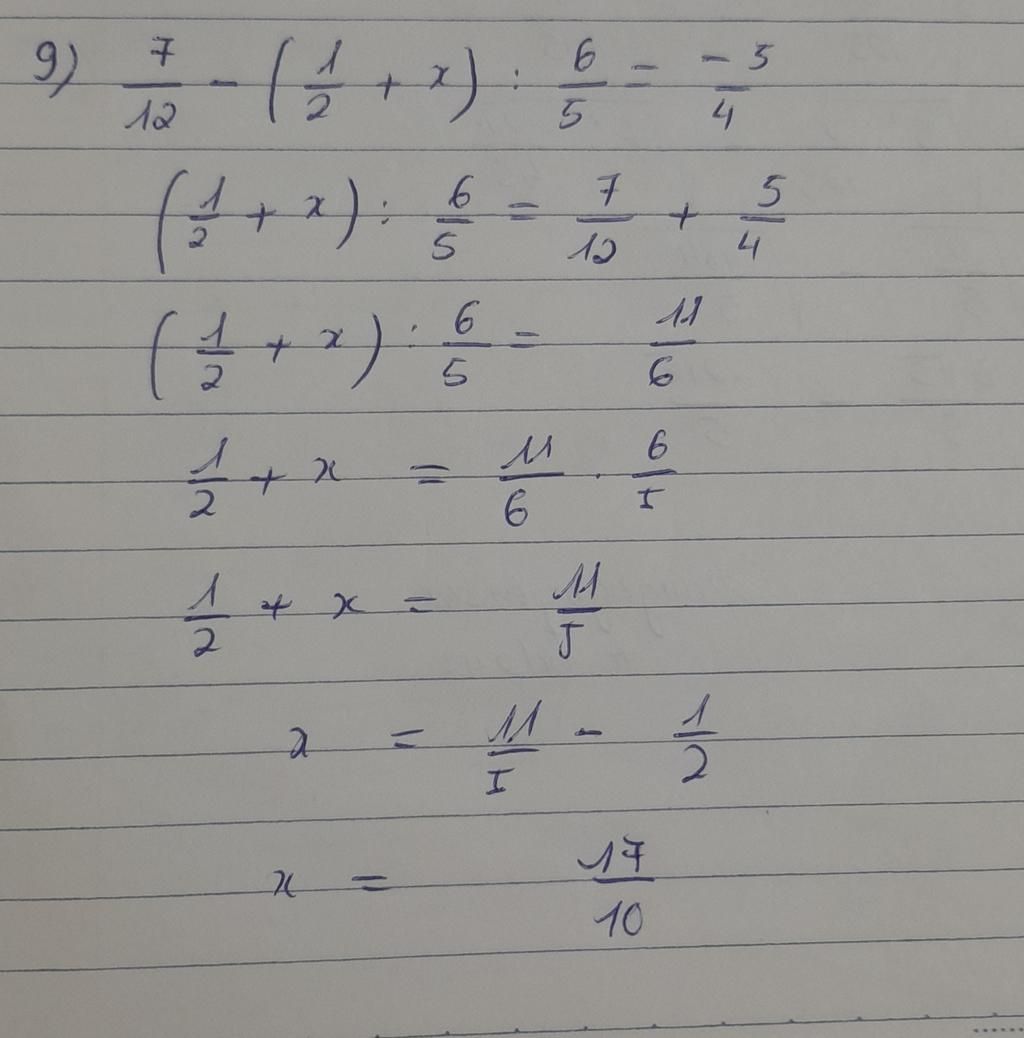 9) 7/12 - (1/2 + x) : 6/5 = -5/4
(1/2 + x) : 6/5 = 7/12 + 5/4
(1/2 + x) : 6/5 = 11/6
1/2 + x = 11/6 . 6/5
1/2 + x = 11/5
x = 11/5 - 1/2
x = 17/10